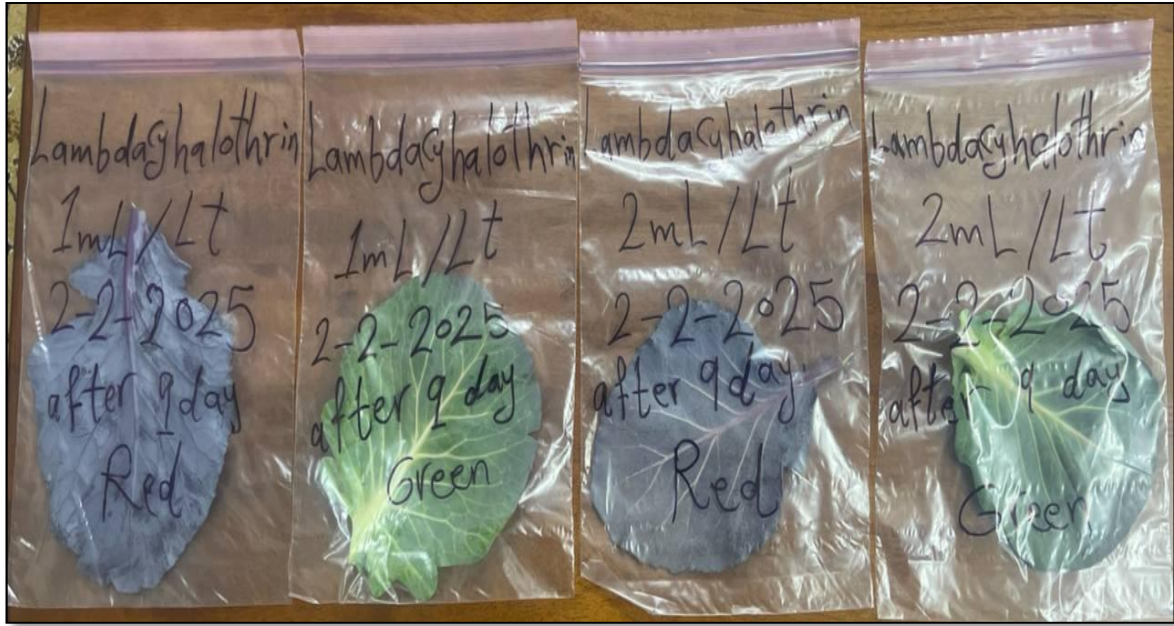 Lambdacyhalothrin
1mL/Lt
2-2-2025
after 9 day
Red
Lambdacyhalothrin
1mL/Lt
2-2-2025
after 9 day
Green
Lambdacyhalothrin
2mL/Lt
2-2-2025
after 9 day
Red
Lambdacyhalothrin
2mL/Lt
2-2-2025
after 9 day
Green